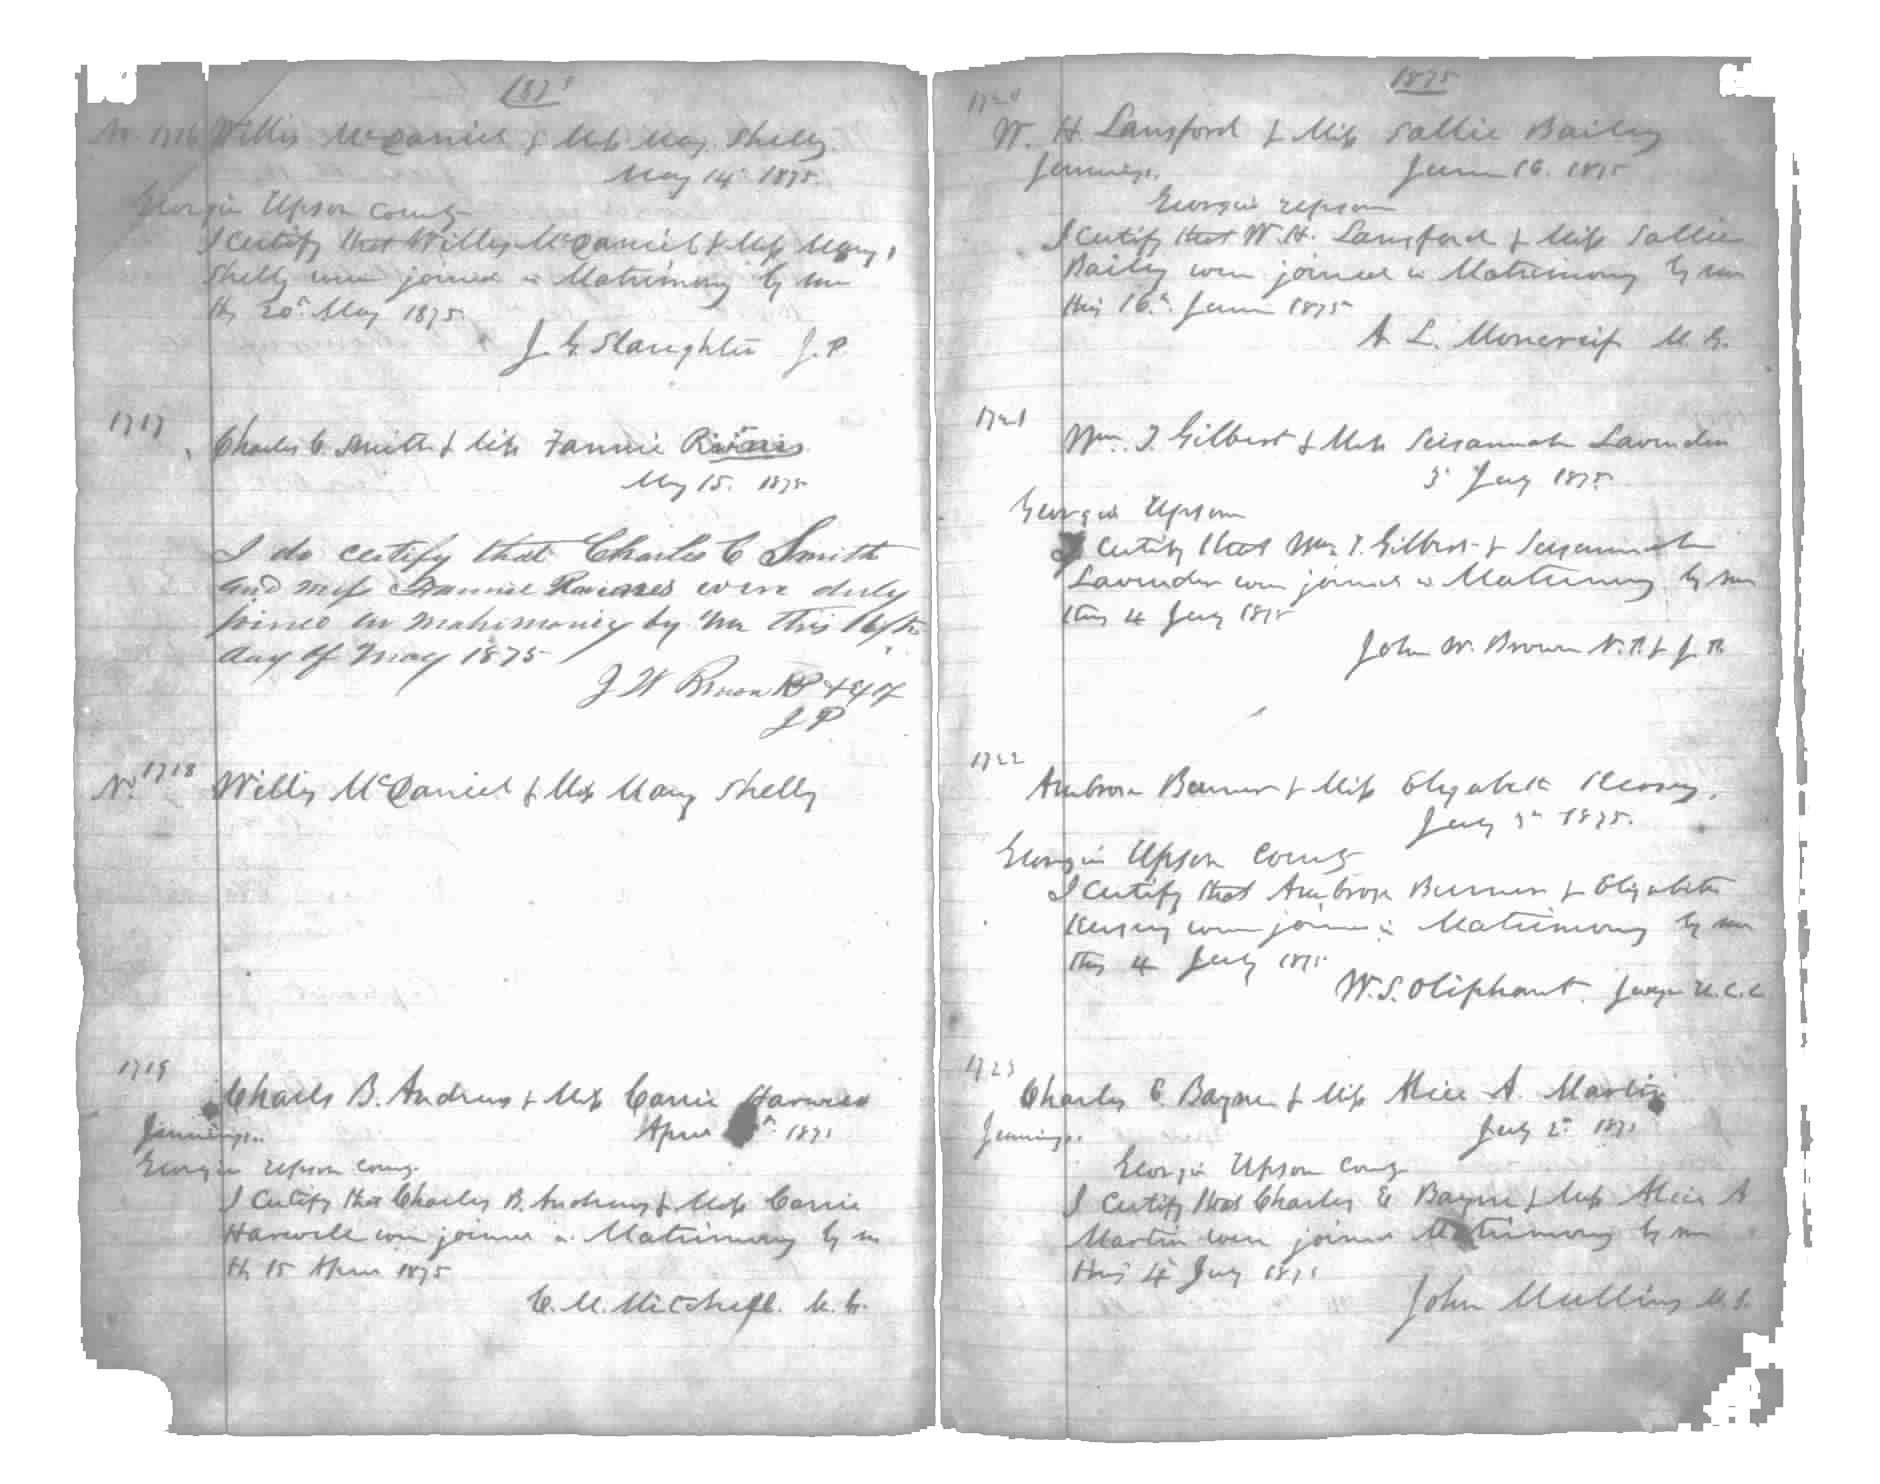 1875
No. 1716 Willis McDaniel & Miss May Shelly
May 14 1875.
Georgia Upson County
I Certify that Willis McDaniel & Miss Mary
Shelly were joined in Matrimony by me
this 20th May 1875
J. G. Slaughter J. P.
1717
Charles C. Smith & Miss Fannie
May 15. 1875
I do certify that Charles C Smith
and miss Fannie were duly
joined in matrimoniey by me this 16th
day of May 1875
J W Brown
J P
No. 1718 Willis McDaniel & Miss Mary Shelly
1719
Charles B. Andrews & Miss Carrie Harwell
Jennings. April 1875
Georgia Upson County
I Certify that Charles B. Andrews & Miss Carrie
Harwell were joined in Matrimony by me
this 15 April 1875
C. M. Mitchell. M. G.
1875
1720
W. H. Lansford & Miss Sallie Bailey
Jennings. June 16. 1875
Georgia Upson
I Certify that W. H. Lansford & Miss Sallie
Bailey were joined in Matrimony by me
this 16th June 1875
A. L. Moncreif M. G.
1721
Wm. T. Gilbert & Miss Seisannah Lavender
3 July 1875
Georgia Upson
I Certify that Wm T. Gilbert & Seisannah
Lavender were joined in Matrimony by me
this 4 July 1875
John W. Brown N. P. & J. P.
1722
Ambrose & Miss Elizabeth Kersey.
July 3rd 1875.
Georgia Upson County
I Certify that Ambrose & Elizabeth
Kersey were joined in Matrimony by me
this 4 July 1875
W. S. Oliphant. Judge U. C. C
1723
Charles E. Bayne & Miss Alice A. Martin
Jennings. July 2nd 1875
Georgia Upson County
I Certify that Charles E Bayne & Miss Alice A
Martin were joined Matrimony by me
this 4th July 1875
John Mullins M. G.